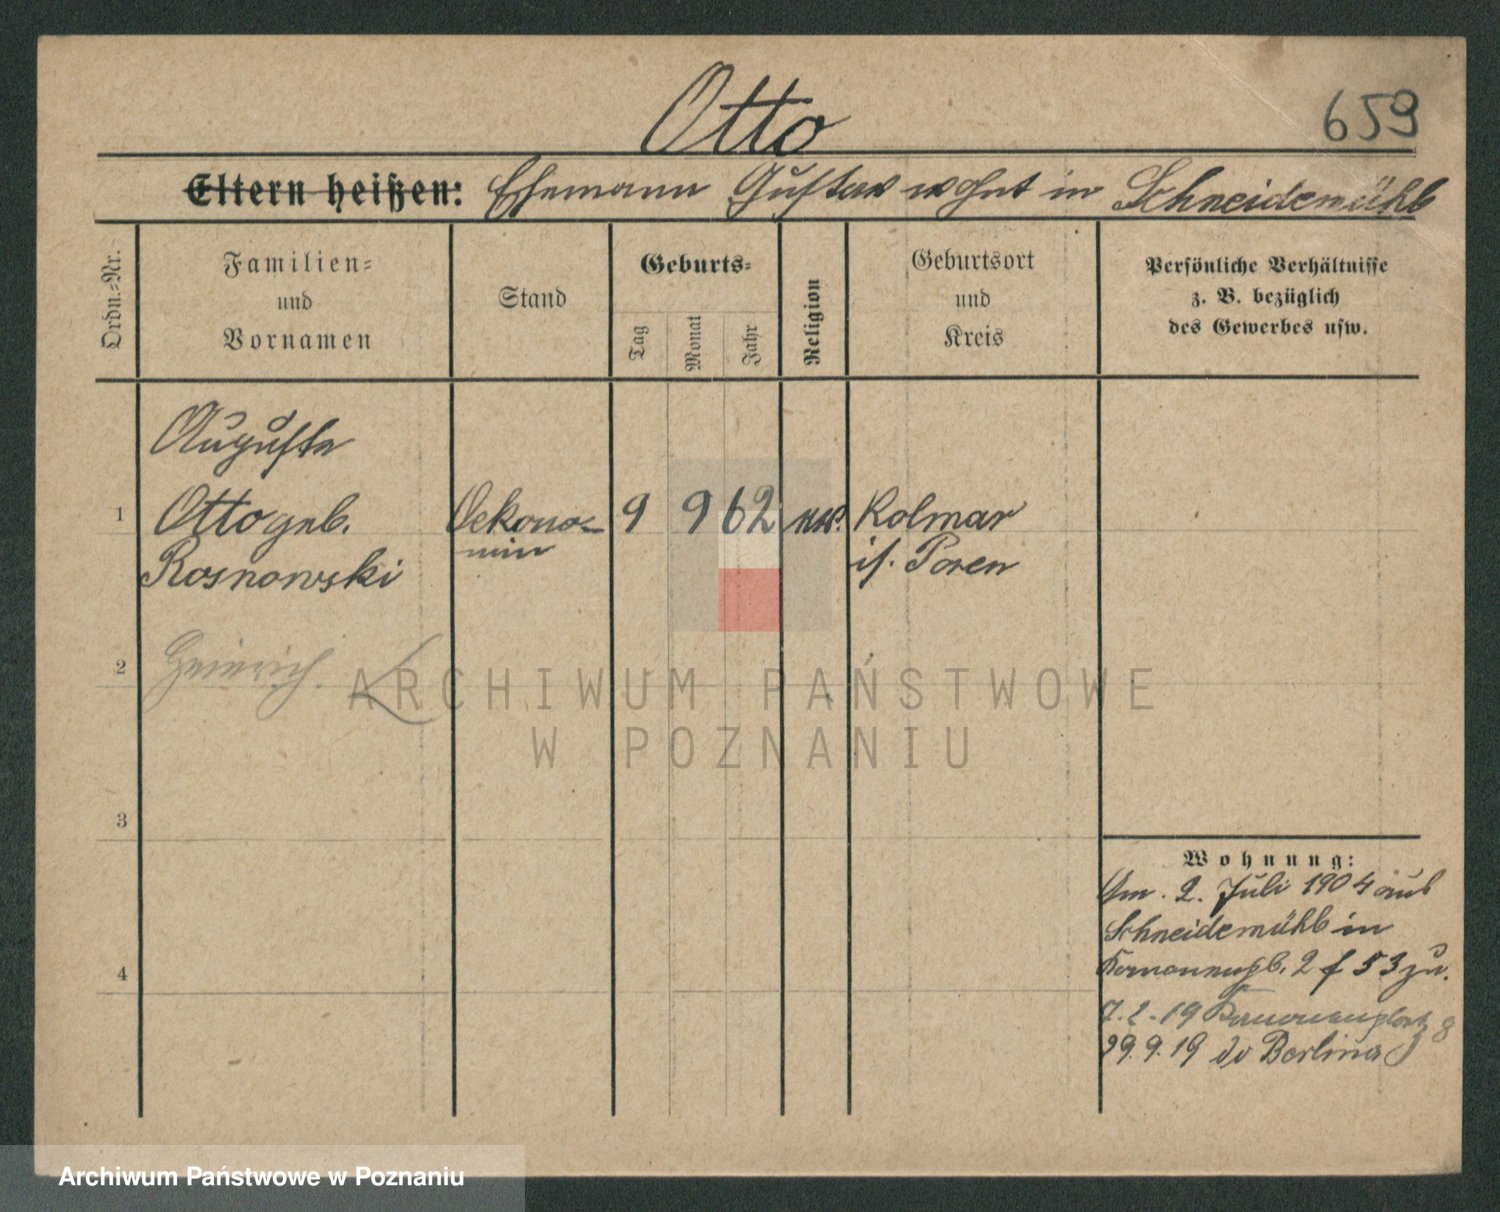 Otto
659
Eltern heißen: Ehemann Gustav wohnt in Schneidemühl
Ordn.-Nr.
Familien-
und
Vornamen
Stand
Geburts-
Tag
Monat
Jahr
Religion
Geburtsort
und
Kreis
Persönliche Verhältnisse
z. B. bezüglich
des Gewerbes usw.
Auguste
1 Otto geb. Oekono- 9 9 62 Kolmar
Rosnowski min i/. Posen
2 Heinrich.
3
4
Wohnung:
Am. 2. Juli 1904 aus
Schneidemühl in
2 f 53 zu.
7.2.-19 8
29.9.19 Berlin
ARCHIWUM PAŃSTWOWE
W POZNANIU
Archiwum Państwowe w Poznaniu